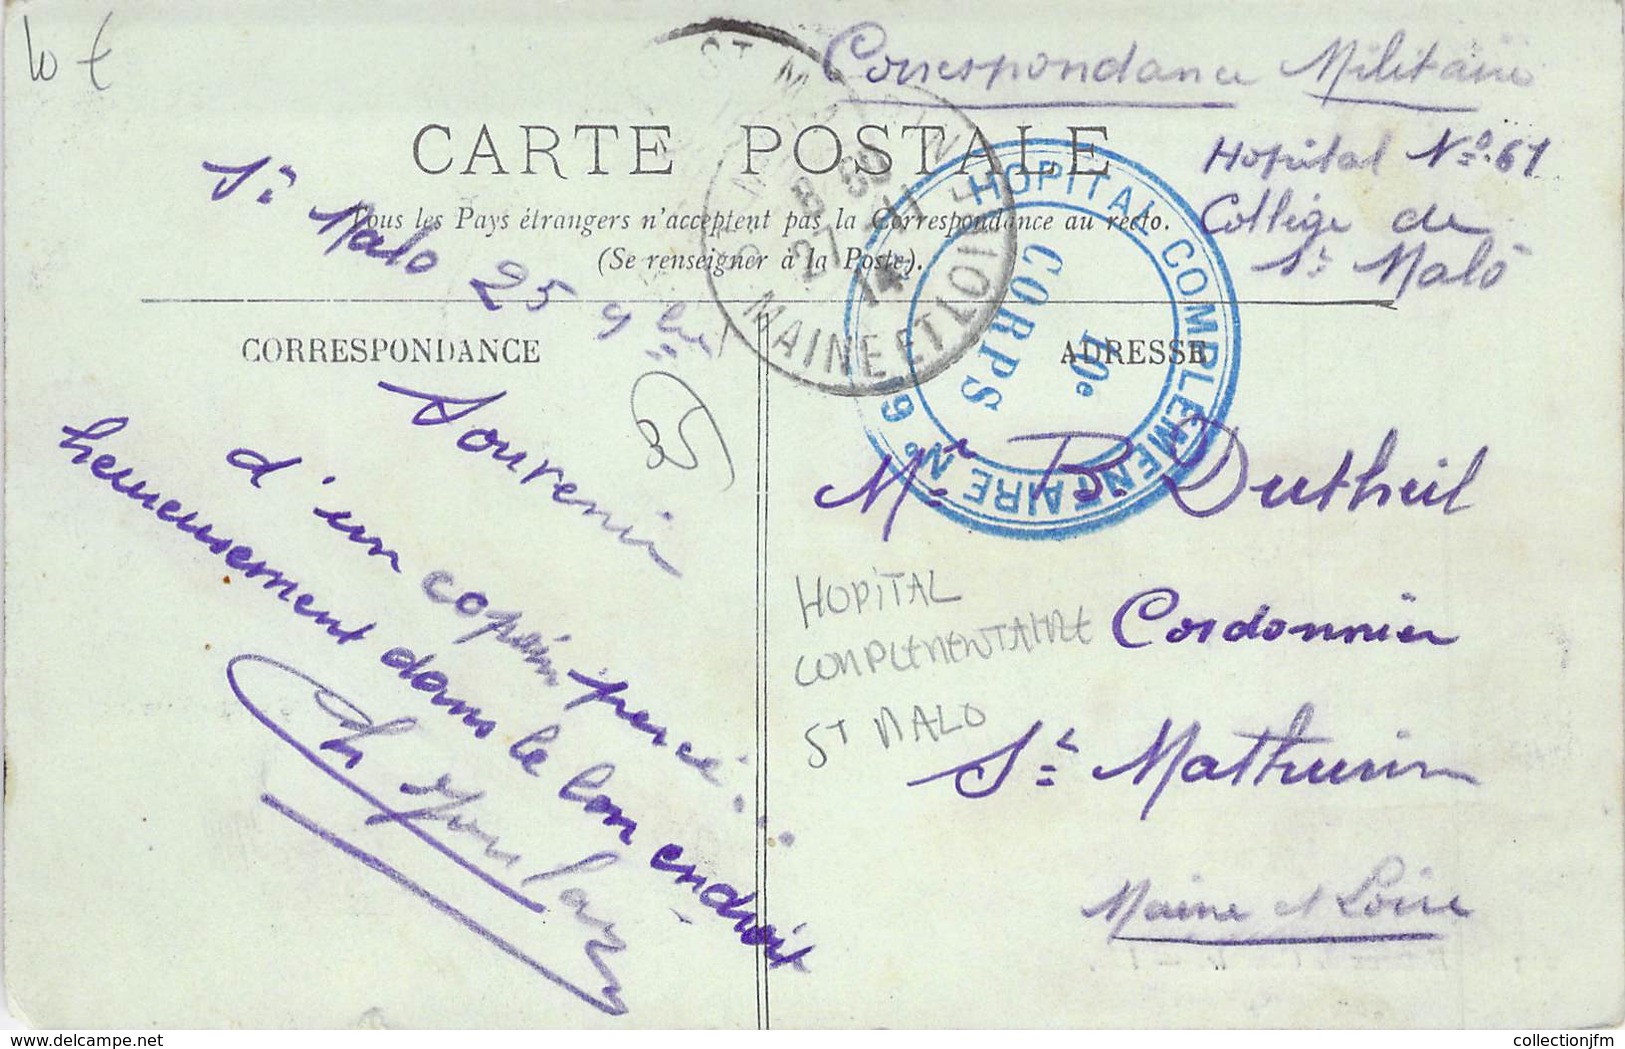 10 €
Correspondance Militaire
CARTE POSTALE
Hopital No. 61
Collège de
St Malo
Tous les Pays étrangers n'acceptent pas la Correspondance au recto.
(Se renseigner à la Poste).
St Malo 25 9bre
ST MATHURIN
8 50
27 -11
14
MAINE ET LOIRE
HOPITAL COMPLEMENTAIRE No 6
10e
CORPS
CORRESPONDANCE
ADRESSE
Souvenir
d'un copain percé...
heureusement dans le bon endroit
Mr Dutheil
Cordonnier
St Mathurin
Maine et Loire
HOPITAL
COMPLEMENTAIRE
ST MALO
www.delcampe.net
collectionjfm